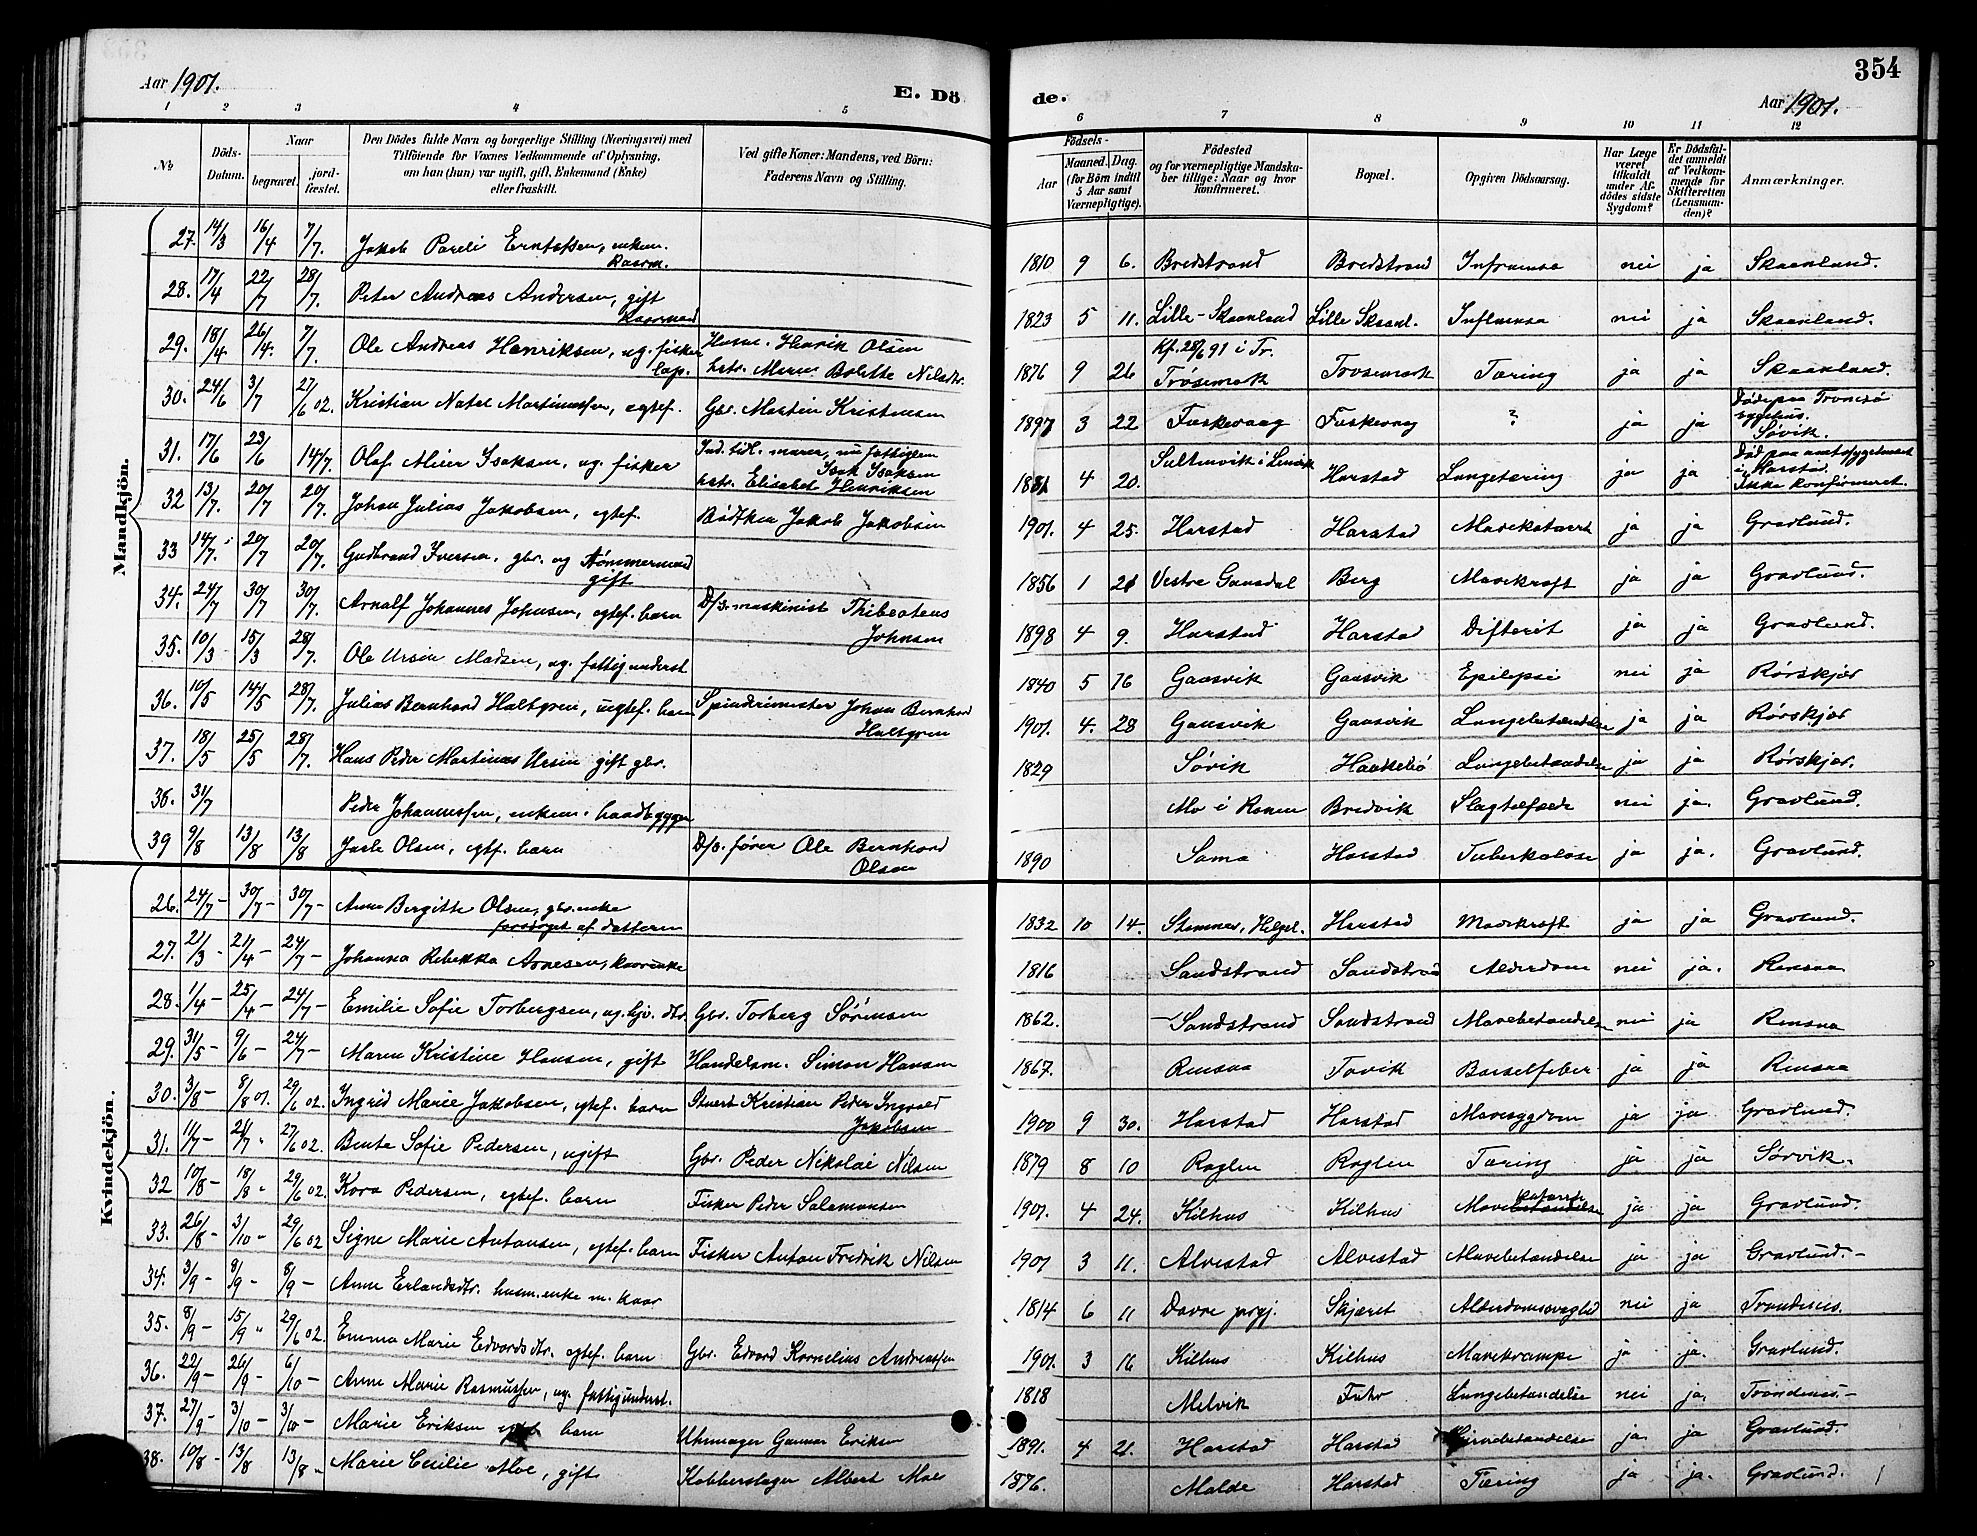 354
Aar 1901.
E. Döde.
Aar 1901.
1 2 3 4 5 6 7 8 9 10 11 12
No
Döds-Datum.
Naar
begravet.
jordfæstet.
Den Dödes fulde Navn og borgerlige Stilling (Næringsvei) med
Tilföiende for Voxnes Vedkommende af Oplysning,
om han (hun) var ugift, gift, Enkemand (Enke)
eller fraskilt.
Ved gifte Koner: Mandens, ved Börn:
Faderens Navn og Stilling.
Födsels-
Aar
Maaned. Dag.
(for Börn indtil
5 Aar samt
Værnepligtige).
Födested
og for værnepligtige Mandska-
ber tillige: Naar og hvor
konfirmeret.
Bopæl.
Opgiven Dödsaarsag.
Har Læge
været
tilkaldt
under Af-
dödes sidste
Sygdom?
Er Dödsfal-
det anmeldt
af Vedkom-
mende for
Skifteretten
(Lensman-
den)?
Anmærkninger.
Mandkjön.
27. 14/3 16/4 7/7. Jakob Pareli Erntssen, enkem. kaarm. 1810 9 6. Bredstrand Bredstrand Infruensa nei ja Skaanland.
28. 17/4 22/7 28/7. Peter Andreas Andersen, gift kaarmand 1823 5 11. Lille-Skaanland Lille Skaanl. Influensa nei ja Skaanland.
29. 18/4 26/4. 7/7. Ole Andreas Henriksen, ug. fisker lap. Husm. Henrik Olsen hstr. Maren Bolette Nilsdtr. 1876 9 26 Kf. 28/6 91 i Tr. Trøsemark Trosemark Tæring ja ja Skaanland.
30. 24/6 3/7 27/6 02. Kristian Natal Martinussen, egtef. Gbr. Martin Kristensen 1897 3 22 Faskevaag Faskevaag ? ja ja Døde paa Tromsø sygehus. Sørvik.
31. 17/6 23/6 14/7. Olaf Meier Isaksen, ug. fisker Ind. til. marer, nu fattiglem Isak Isaksen hstr. Elisabet Henriksen 1881 4 20. Sultenvik i Lenvik Harstad Lungetæring ja ja Død paa amtssygehuset i Harstad. Ikke konfirmeret.
32 13/7. 20/7 20/7. Johan Julius Jakobsen, egtef. Bødtker Jakob Jakobsen 1901. 4 25. Harstad Harstad Mavekatarrh ja ja Gravlund.
33 14/7. 20/7 20/7. Gudbrand Iversen, gbr. og tømmermand gift 1856 1 21 Vestre Gausdal Berg Mavekræft ja ja Gravlund.
34. 24/7 30/7 30/7. Arnolf Johannes Johnsen, egtef. barn D/s. maskinist Thibeatens Johnsen 1898 4 9. Harstad Harstad Difterit ja ja Gravlund.
35. 10/3 15/3 28/7. Ole Ursin Madsen, ug. fattigunderst 1840 5 16 Gausvik Gausvik Epilepsi nei ja Rørskjær
36. 10/5 14/5 28/7. Julius Bernhard Haltgren, uegtef. barn Spinderimester Johan Bernhard Haltgren 1901. 4. 28 Gausvik Gausvik Lungebetændelse ja ja Rørskjær
37. 18/5 25/5 28/7. Hans Peder Martinus Ursin gift gbr. 1829 Sørvik Haakebø Lungebetændelse ja ja Rørskjær.
38. 31/7 Peder Johannessen, enkem. baadbygger Mo i Ranen Bredvik Slagtilfæde nei ja. Gravlund.
39 9/8 13/8 13/8 Jarle Olsen, egtf. barn D/s. fører Ole Bernhard Olsen 1890 Sama Harstad Tuberkulose ja ja. Gravlund.
Kvindekjön.
26. 24/7- 30/7- 30/7- Anne Bergitte Olsen, gbr. enke forsörget af datteren 1832 10 14. Stamnes, Helgel. Harstad Mavekræft ja ja Gravlund.
27. 21/3- 21/4- 24/7- Johanna Rebekka Arnesen, kaarenke 1816 Sandstrand Sandstrand Alderdom nei ja. Rensaa
28. 1/4- 25/4- 24/7- Emilie Sofie Torbergsen, ug. hjv. dtr. Gbr. Torberg Sörensen 1862. Sandstrand Sandstrand Mavebetændelse nei ja Rensaa
29. 31/5- 9/6- 24/7- Maren Kristine Hansen, gift Handelsm. Simon Hansen 1867. Rensaa Tovik Barselfeber ja ja Rensaa
30. 3/8- 8/8 01. 29/6 02. Ingrid Marie Jakobsen, egtef. barn Stuert Kristian Peder Ingvald Jakobsen 1900 9 30. Harstad Harstad Mavesygdom ja ja Gravlund.
31. 11/7- 21/7 27/6 02. Bente Sofie Pedersen, ugift Gbr. Peder Nikolai Nilsen 1879 8 10 Roglen Roglen Tæring ja ja Sørvik.
32 10/8- 18/8 29/6 02. Kora Pedersen, egtef. barn Fisker Peder Salamonsen 1901. 4 24. Kilhus Kilhus Mavebetændelse katarrh ja ja Gravlund.
33. 26/8- 3/10- 29/6 02 Signe Marie Antonsen, egtef. barn Fisker Anton Fredrik Nilsen 1901 3 11. Alvestad Alvestad Mavebetændelse ja ja Gravlund.-
34. 3/9- 8/9- 8/9- Anne Erlandsdtr. husm.enke m. kaar 1814 6 11 Dovre prgj. Skjæret Alderdomssvaghed nei ja Trondenes.
35. 8/9- 15/9 29/6 02. Emma Marie Edvardsdtr. egtef. barn Gbr. Edvard Kornelius Andreassen 1901. 3 16 Kilhus Kilhus Mavekrampe ja ja. Gravlund.
36. 22/9- 26/9- 6/10- Anne Marie Rasmussen, ug. fattigunderst. 1818 Melvik Fuhr Lungebetændelse nei ja. Trondenes.-
37. 27/9- 3/10- 3/10- Marie Eriksen egtef. barn Uhrmager Gunnar Eriksen 1891. 4 21. Harstad Harstad Hjernebetændelse ja. ja. Gravlund.
38. 10/8- 13/8 13/8 Marie Cecilie Moe, gift Kobberslager Albert Moe 1876. Molde Harstad Tæring ja ja. Gravlund.